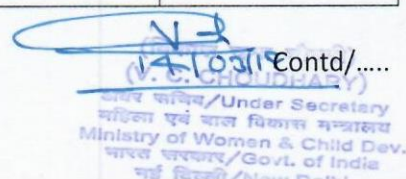 14/03/19 Contd/.....
(V. C. CHOUDHARY)
अवर सचिव/Under Secretary
महिला एवं बाल विकास मन्त्रालय
Ministry of Women & Child Dev.
भारत सरकार/Govt. of India
नई दिल्ली/New Delhi